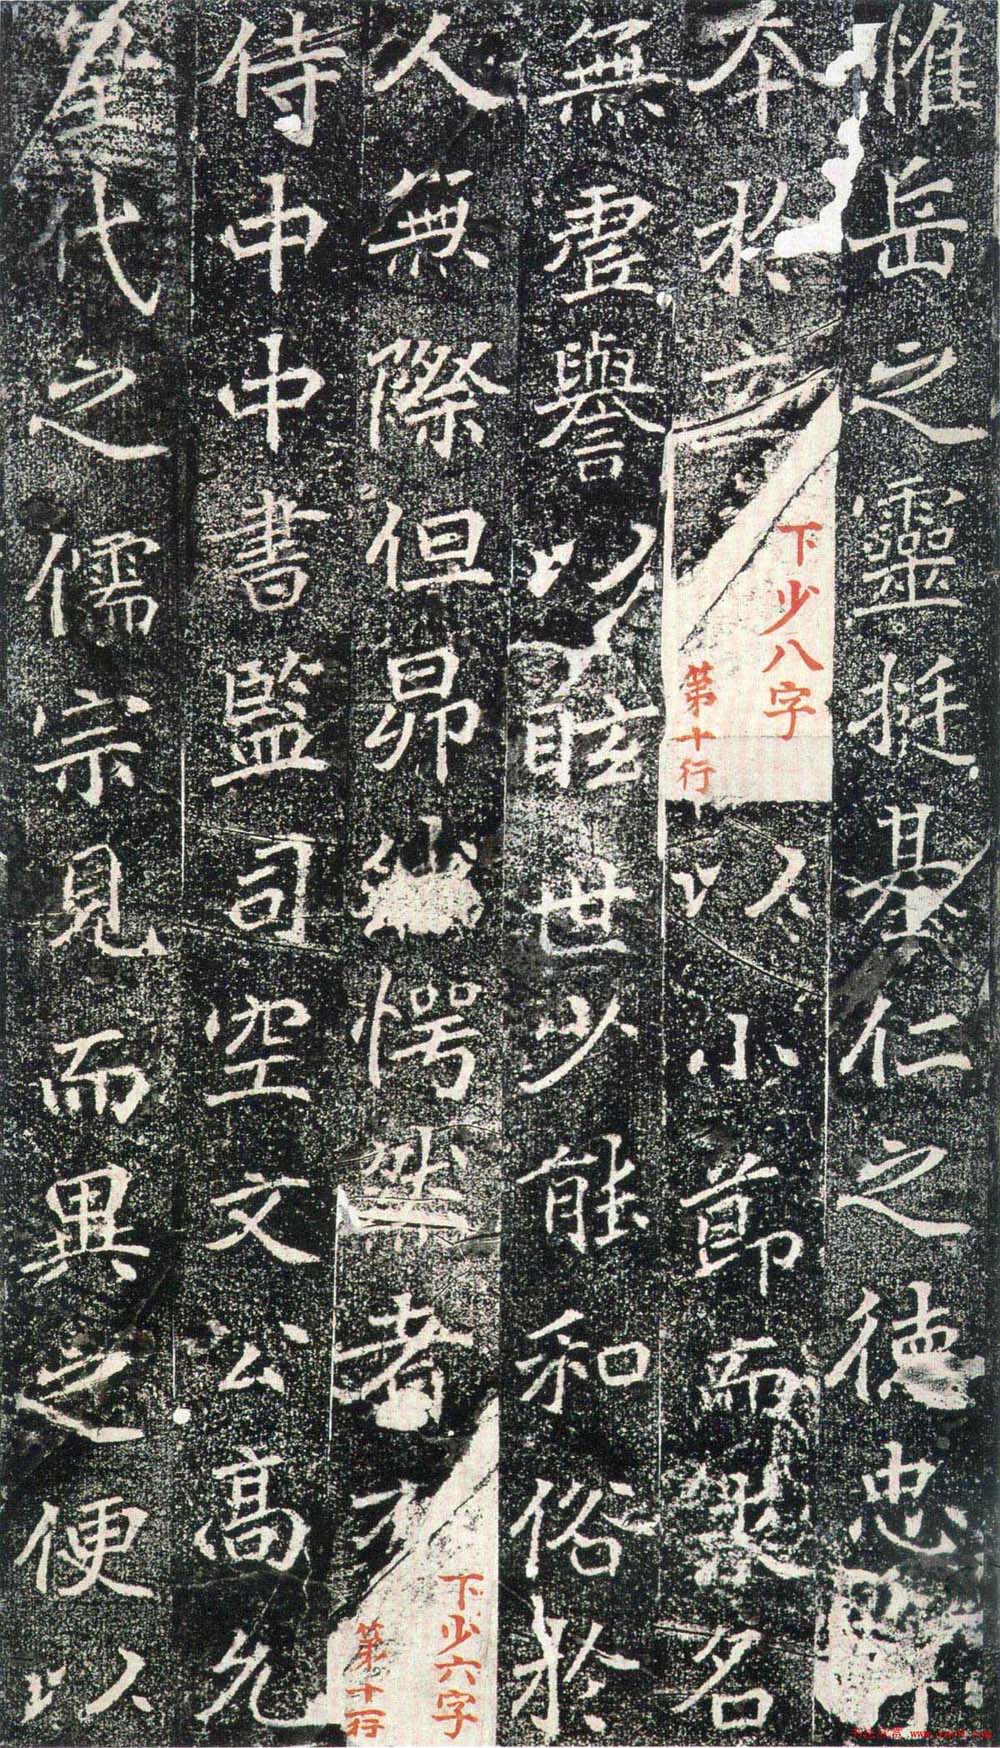 惟岳之靈挺基仁之德忠
本於立
下少八字
第十行
以小節而求名
無虛譽以眩世少能和俗於
人無際但昂愕者
下少六字
第十一行
侍中中書監司空文公高允
代之儒宗見而異之便以